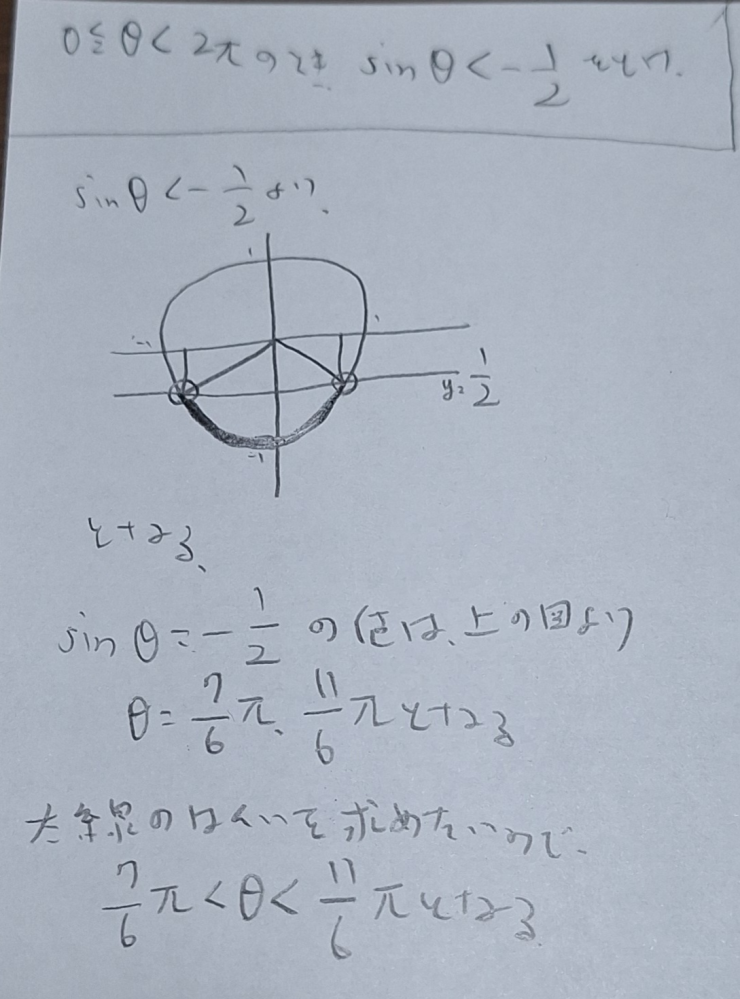 0≦θ<2πのとき sinθ<-1/2 をとけ.
sinθ<-1/2 より、
1
-1
1
y=1/2
-1
となる、
sinθ=-1/2 の値は、上の図より
θ=7/6π、11/6πとなる
太線のはんいを求めたいので、
7/6π<θ<11/6πとなる